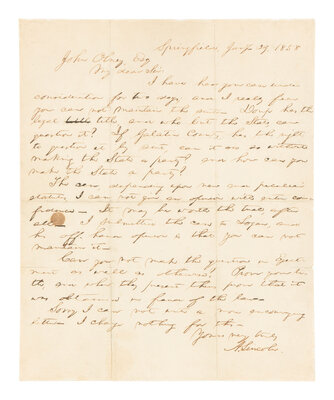 Springfield, Jany 29, 1858
John Olney, Esq
My dear Sir:
I have had your case under
consideration for two days, and I really fear
you can not maintain the suit. Don's has the
legal title and who but the State can
question it? If Gallatin County has the right
to question it by suit, can it do so without
making the State a party? and how can you
make the State a party?
The case depending upon new and peculiar
statutes, I can not give an opinion with entire con-
fidence. It may be worth the trial after
all. I submitted the case to Logan, and
his off hand opinion is that you can not
maintain it.
Can you not make the question in eject-
ment as well as otherwise? Prove your ti-
tle, and when they present theirs prove that it
was obtained in fraud of the law.
Sorry I can not write a more encouraging
letter. I charge nothing for this.
Yours very truly
A. Lincoln.